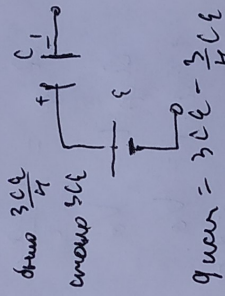 было 3Cℰ/4
стало 3Cℰ
C
+ -
ℰ
q ист = 3Cℰ - 3/4 Cℰ